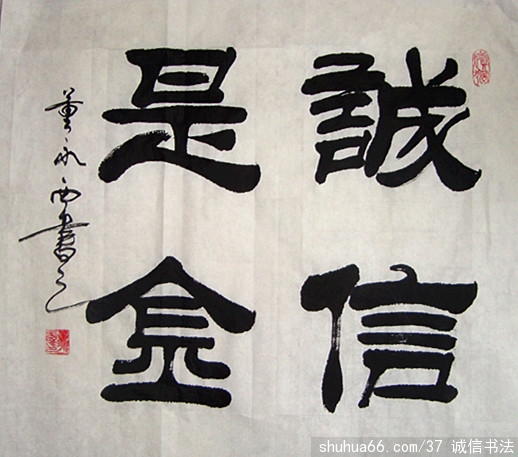 誠信
是金
董永西書之
shuhua66.com/37 诚信书法